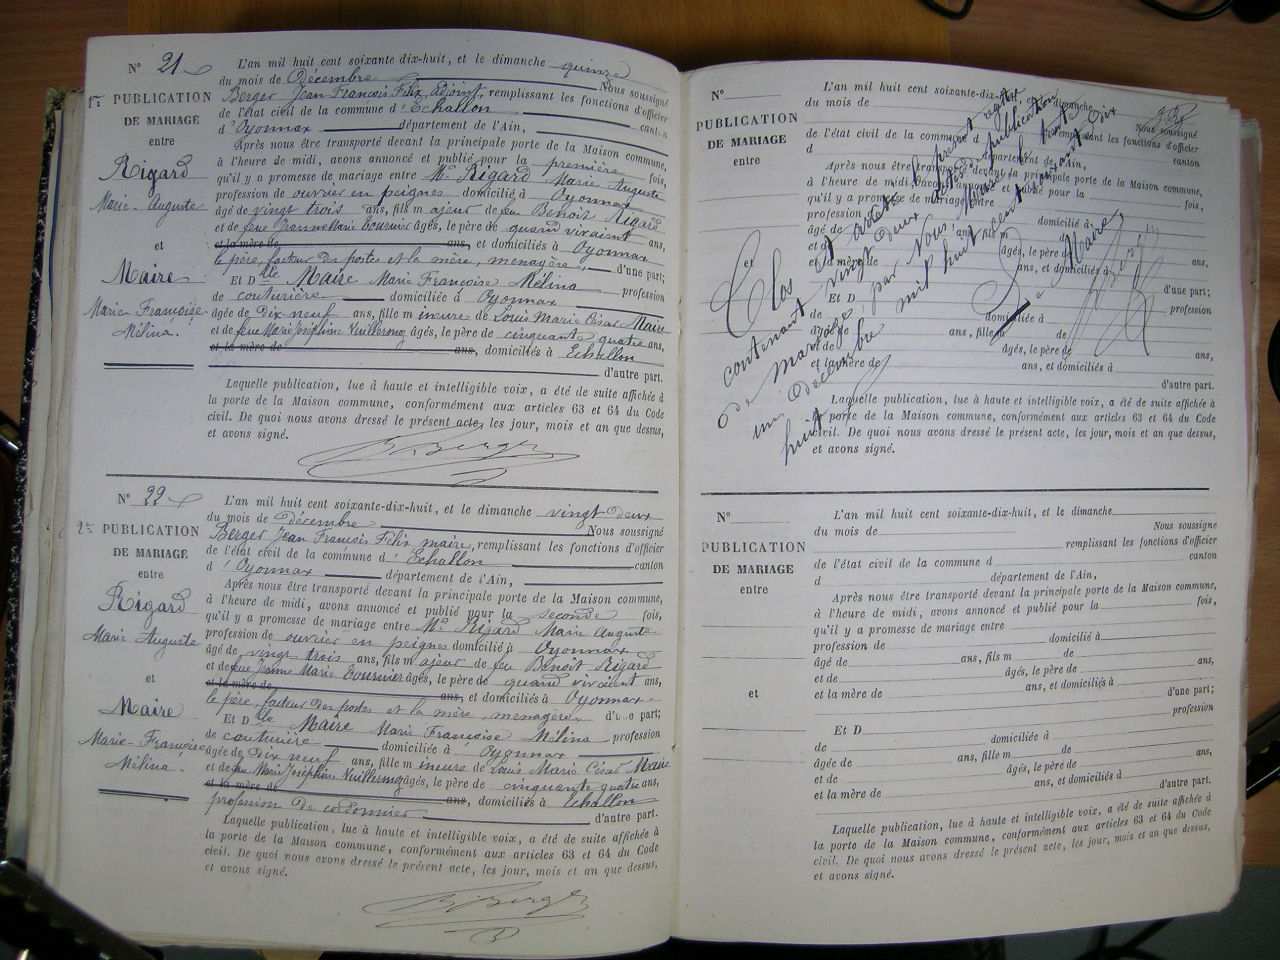 N° 21
1re PUBLICATION
DE MARIAGE
entre
Rigard
Marie-Auguste
et
Maire
Marie Françoise
Mélina.
L'an mil huit cent soixante-dix-huit, et le dimanche quinze
du mois de Décembre Nous soussigné
Berger Jean François Félix, adjoint, remplissant les fonctions d'officier
de l'état civil de la commune d'Echallon canton
d'Oyonnax département de l'Ain,
Après nous être transporté devant la principale porte de la Maison commune,
à l'heure de midi, avons annoncé et publié pour la première fois,
qu'il y a promesse de mariage entre Mr Rigard Marie Auguste
profession de ouvrier en peignes domicilié à Oyonnax
âgé de vingt trois ans, fils majeur de feu Benoit Rigard
et de feue Jeanne Marie Tournier âgés, le père de quand vivaient ans,
et la mère de ans, et domiciliés à Oyonnax
le père, facteur des postes et la mère, menagère, d'une part;
Et Dlle Maire Marie Françoise Mélina profession
de couturière domiciliée à Oyonnax
âgée de Dix neuf ans, fille mineure de Louis Marie César Maire
et de feue Marie Joséphine Vuillermoz âgés, le père de cinquante quatre ans,
et la mère de ans, domiciliés à Echallon
d'autre part.
Laquelle publication, lue à haute et intelligible voix, a été de suite affichée à
la porte de la Maison commune, conformément aux articles 63 et 64 du Code
civil. De quoi nous avons dressé le présent acte, les jour, mois et an que dessus,
et avons signé.
Berger
N° 22
2e PUBLICATION
DE MARIAGE
entre
Rigard
Marie Auguste
et
Maire
Marie-Françoise
Mélina.
L'an mil huit cent soixante-dix-huit, et le dimanche vingt deux
du mois de décembre Nous soussigné
Berger Jean François Félix maire, remplissant les fonctions d'officier
de l'état civil de la commune d'Echallon canton
d'Oyonnax département de l'Ain,
Après nous être transporté devant la principale porte de la Maison commune,
à l'heure de midi, avons annoncé et publié pour la seconde fois,
qu'il y a promesse de mariage entre Mr Rigard Marie Auguste
profession de ouvrier en peignes domicilié à Oyonnax
âgé de vingt trois ans, fils majeur de feu Benoit Rigard
et de feue Jeanne Marie Tournier âgés, le père de quand vivaient ans,
et la mère de ans, et domiciliés à Oyonnax
le père, facteur des postes et la mère menagère d'une part;
Et Dlle Maire Marie Françoise Mélina profession
de couturière domiciliée à Oyonnax
âgée de Dix neuf ans, fille mineure de Louis Marie César Maire
et de feue Marie Joséphine Vuillermoz âgés, le père de cinquante quatre ans,
et la mère de ans, domiciliés à Echallon
profession de cordonnier d'autre part.
Laquelle publication, lue à haute et intelligible voix, a été de suite affichée à
la porte de la Maison commune, conformément aux articles 63 et 64 du Code
civil. De quoi nous avons dressé le présent acte, les jour, mois et an que dessus,
et avons signé.
Berger
N°
PUBLICATION
DE MARIAGE
entre
et
L'an mil huit cent soixante-dix-huit, et le dimanche
du mois de Nous soussigné
remplissant les fonctions d'officier
de l'état civil de la commune d canton
d département de l'Ain,
Après nous être transporté devant la principale porte de la Maison commune,
à l'heure de midi, avons annoncé et publié pour la fois,
qu'il y a promesse de mariage entre
profession de domicilié à
âgé de ans, fils m de
et de âgés, le père de ans,
et la mère de ans, et domiciliés à
d'une part;
Et D profession
de domiciliée à
âgée de ans, fille m de
et de âgés, le père de ans,
et la mère de ans, et domiciliés à
d'autre part.
Laquelle publication, lue à haute et intelligible voix, a été de suite affichée à
la porte de la Maison commune, conformément aux articles 63 et 64 du Code
civil. De quoi nous avons dressé le présent acte, les jour, mois et an que dessus,
et avons signé.
Clos et arrêté le présent registre
contenant vingt deux actes de publication
de mariage, par Nous Maire le trente
un décembre mil huit cent soixante dix
huit
Le Maire,
N°
PUBLICATION
DE MARIAGE
entre
et
L'an mil huit cent soixante-dix-huit, et le dimanche
du mois de Nous soussigné
remplissant les fonctions d'officier
de l'état civil de la commune d canton
d département de l'Ain,
Après nous être transporté devant la principale porte de la Maison commune,
à l'heure de midi, avons annoncé et publié pour la fois,
qu'il y a promesse de mariage entre
profession de domicilié à
âgé de ans, fils m de
et de âgés, le père de ans,
et la mère de ans, et domiciliés à
d'une part;
Et D profession
de domiciliée à
âgée de ans, fille m de
et de âgés, le père de ans,
et la mère de ans, et domiciliés à
d'autre part.
Laquelle publication, lue à haute et intelligible voix, a été de suite affichée à
la porte de la Maison commune, conformément aux articles 63 et 64 du Code
civil. De quoi nous avons dressé le présent acte, les jour, mois et an que dessus,
et avons signé.